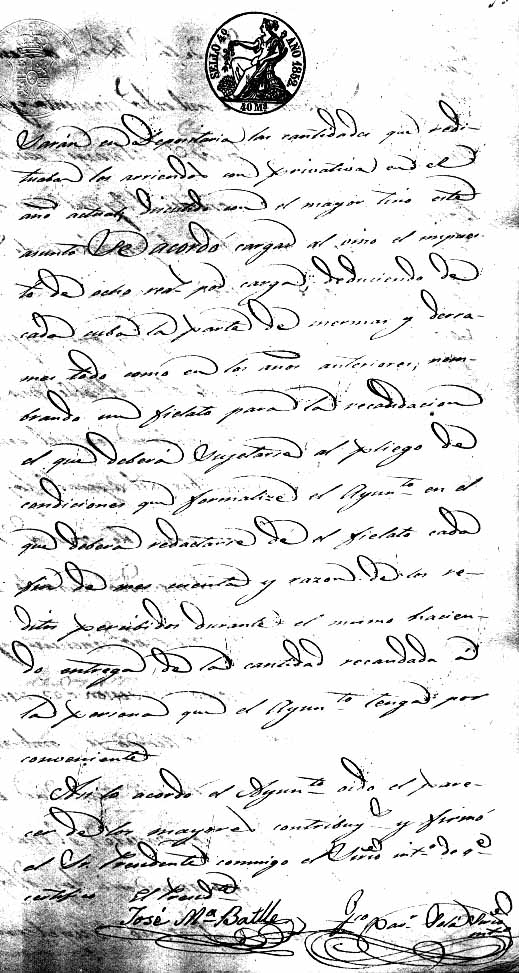 SELLO 4º AÑO 1862.
40 Ms
en Depositaria las cantidades que redi-
tuaban los arriendos con privativa en el
año actual, discutido con el mayor tino este
asunto Se acordó cargar al vino el impues-
to de ocho reals por carga, deduciendo de
cada cuba la parte de mermas y derra-
mes todo como en los años anteriores, nom-
brando un fielato para la recaudacion
el que deberá sujetarse al pliego de
condiciones que formalize el Ayuntº en el
que deberá redactarse de el fielato cada
fin de mes cuenta y razon de los re-
ditos percibidos durante el mismo hacien-
do entrega de la cantidad recaudada á
la persona que el Ayuntº tenga por
conveniente
Asi lo acordó el Ayuntº oido el pare-
cer de los mayores contribuys y firmó
el Sr Presidente conmigo el Srio intº de qe
certifico El Presidte
José Mª Batlle